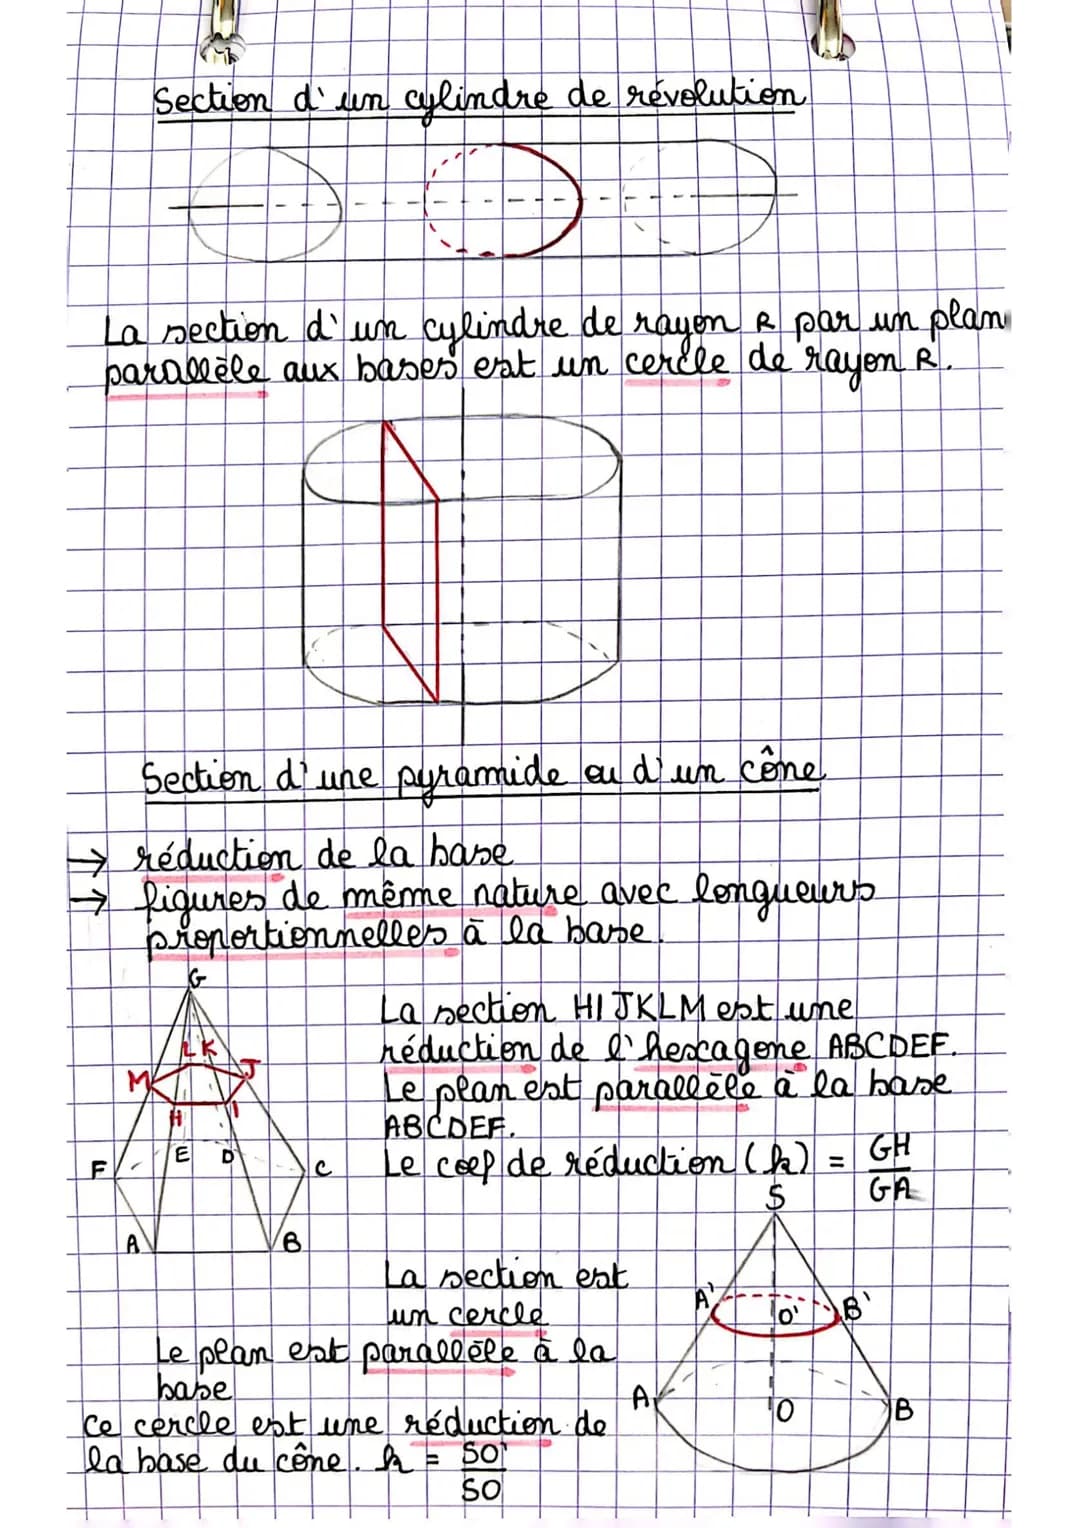 Section d'un cylindre de révolution
La section d'un cylindre de rayon R par un plan
parallèle aux bases est un cercle de rayon R.
Section d'une pyramide ou d'un cône
→ réduction de la base
→ figures de même nature avec longueurs
proportionnelles à la base.
G
L K
M J
H I
F E D C
A B
La section HIJKLM est une
réduction de l'hexagone ABCDEF.
Le plan est parallèle à la base
ABCDEF.
Le coef de réduction (k) = GH/GA
S
A' O' B'
A O B
La section est
un cercle
Le plan est parallèle à la
base
Ce cercle est une réduction de
la base du cône. k = SO'/SO